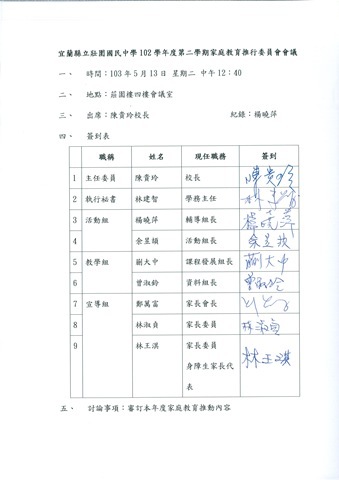 宜蘭縣立壯圍國民中學 102 學年度第二學期家庭教育推行委員會會議
一、 時間：103 年 5 月 13 日 星期二 中午 12：40
二、 地點：莊園樓四樓會議室
三、 出席：陳貴玲校長 紀錄：楊曉萍
四、 簽到表
職稱 姓名 現任職務 簽到
1 主任委員 陳貴玲 校長 陳貴玲
2 執行祕書 林建智 學務主任
3 活動組 楊曉萍 輔導組長
4 余昱頡 活動組長
5 教學組 蒯大中 課程發展組長 蒯大中
6 曾淑鈴 資料組長 曾淑鈴
7 宣導組 鄭萬富 家長會長
8 林淑貞 家長委員 林淑貞
9 林玉淇 家長委員 林玉淇
身障生家長代
表
五、 討論事項：審訂本年度家庭教育推動內容